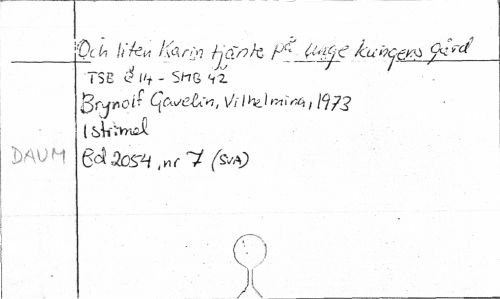 Och liten Karin tjänte på unge kungens gård
TSB C 14 - SMB 42
Brynolf Gavelin, Vilhelmina, 1973
1 strimel
DAUM Bd 2054, nr 7 (SVA)